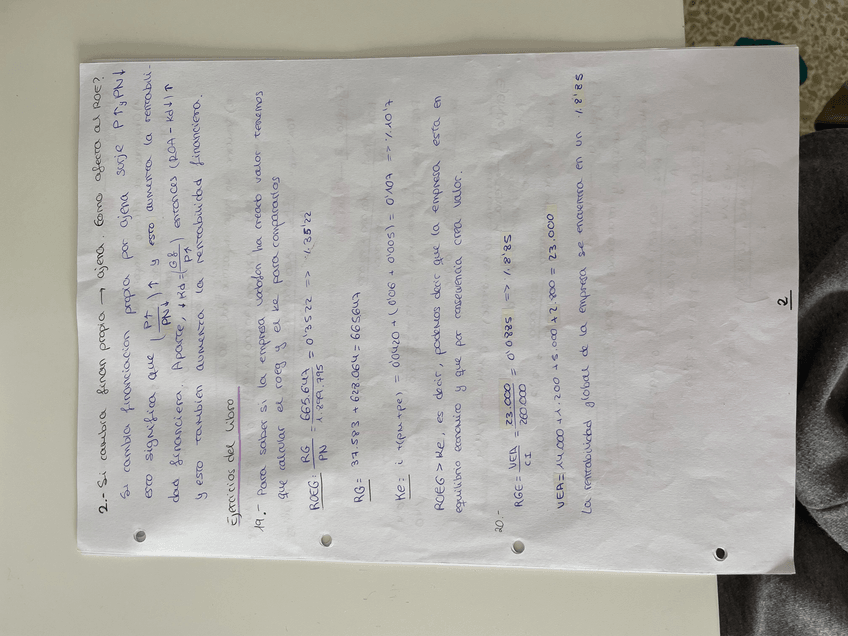 2.- Si cambia finan propia → ajena. Como afecta al ROE?
Si cambia financiacion propia por ajena surje P↑ y PN↓
esto significa que (P↑/PN↓)↑ y esto aumenta la rentabili-
dad financiera. Aparte, ↓Kd = (Gf/P↑) entonces (ROA - Kd↓)↑
y esto tambien aumenta la rentabilidad financiera.
Ejercicios del libro
19.- Para saber si la empresa vodafon ha creado valor tenemos
que calcular el roeg y el Ke para compararlos
ROEG: RG/PN = 665.647/1.899.795 = 0'3522 => %35'22
RG: 37.583 + 628.064 = 665647
Ke: i + (pn+pe) = 0'0420 + (0'06 + 0'005) = 0'107 => %10'7
ROEG > Ke, es decir, podemos decir que la empresa esta en
equilibrio economico y que por consecuencia crea valor.
20.-
RGE = VEA/CI = 23.000/260.000 = 0'0885 => %8'85
VEA = 14.000 + 1.200 + 5.000 + 2.800 = 23.000
La rentabilidad global de la empresa se encuentra en un %8'85
2